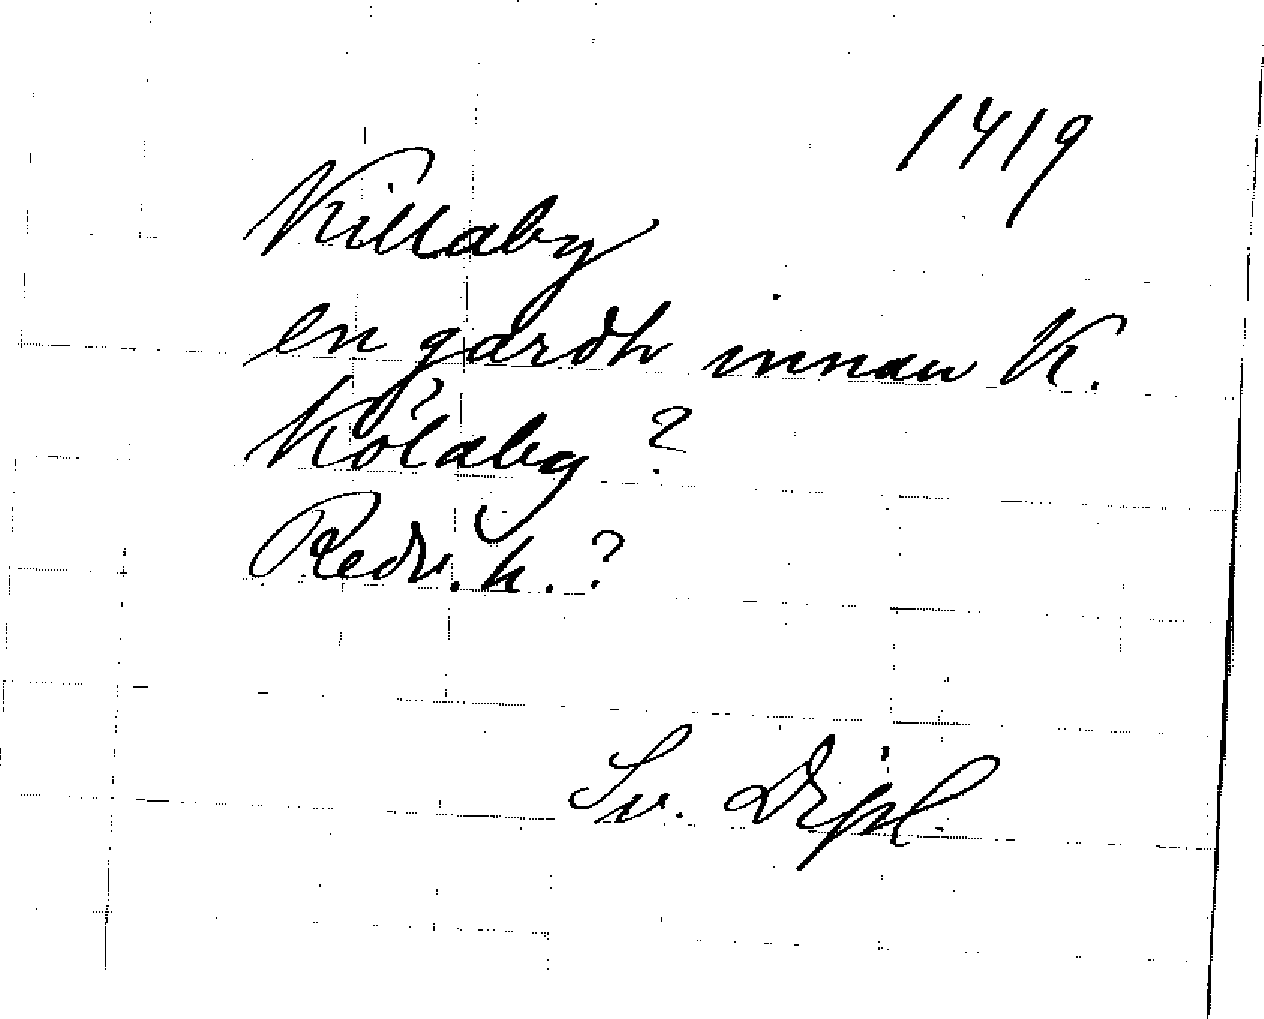 1419
Killaby
en gardh innan K.
Kölaby ?
Redv. h. ?
Sv. Dipl.